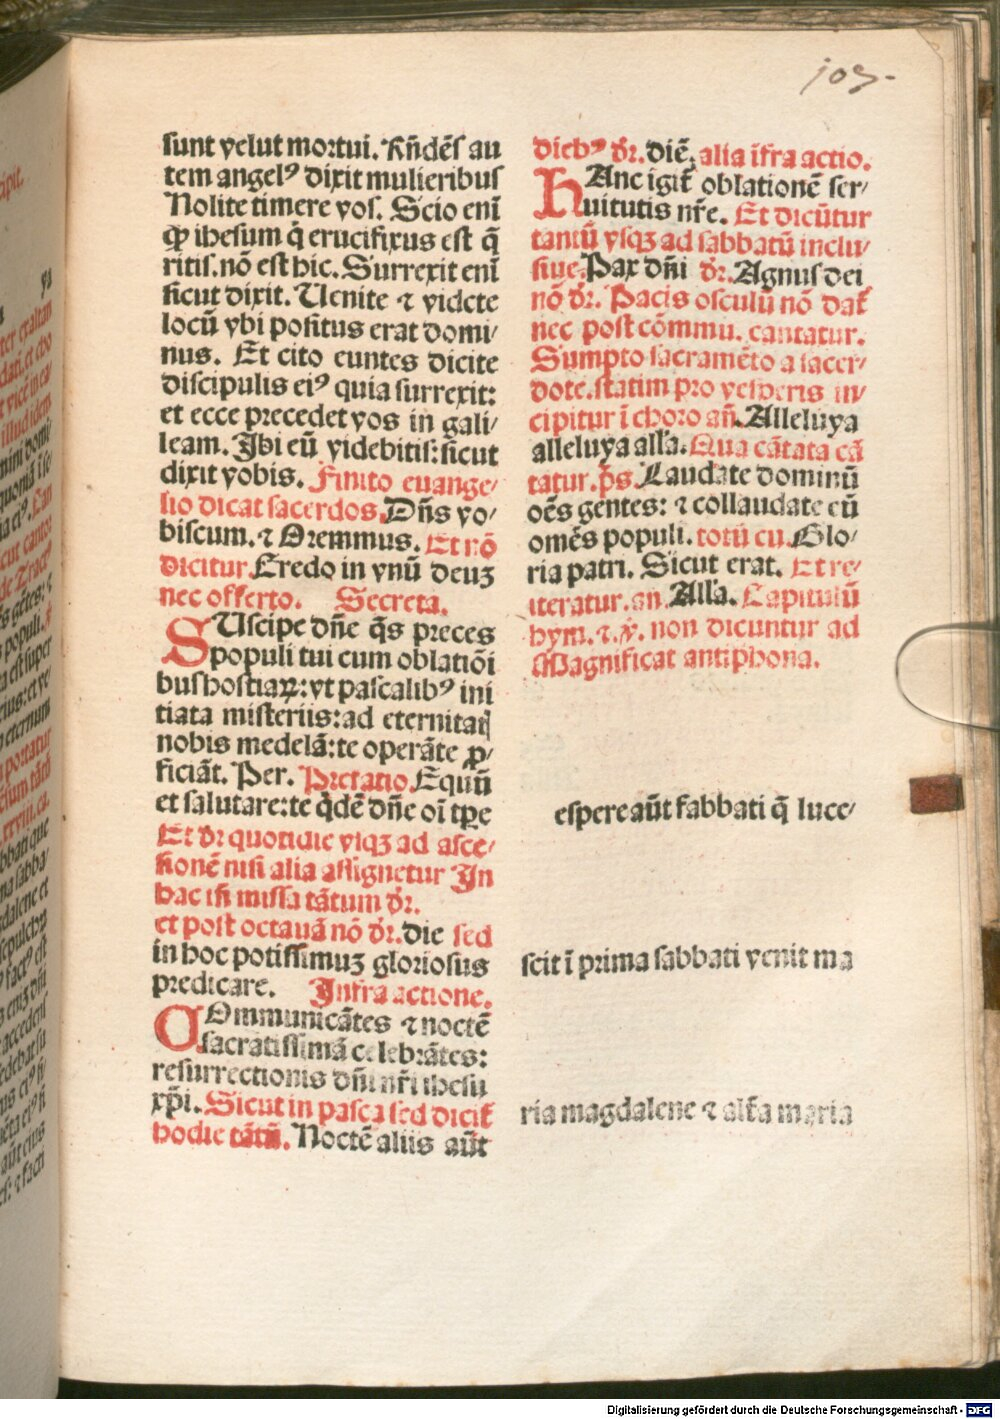 103.
sunt velut mortui. Rñdẽs au
tem angelꝰ dixit mulieribus
Nolite timere vos. Scio enĩ
ꝙ ihesum q̃ crucifixus est q̃
ritis. nõ est hic. Surrexit enĩ
sicut dixit. Uenite ⁊ videte
locũ vbi positus erat domi/
nus. Et cito euntes dicite
discipulis eiꝰ quia surrexit:
et ecce precedet vos in gali/
leam. Ibi eũ videbitis: sicut
dixit vobis. Finito euange/
lio dicat sacerdos. Dñs vo/
biscum. ⁊ Oremmus. Et nõ
dicitur. Credo in vnũ deuꝫ
nec offerto. Secreta.
SUscipe dñe q̃s preces
populi tui cum oblatiõi
bus hostiaꝝ: vt pascalibꝰ ini
tiata misteriis: ad eternitat
nobis medelã: te operãte ꝓ/
ficiãt. Per. Prefatio. Equũ
et salutare: te q̃dẽ dñe oĩ tp̃e
Et dr̃ quotidie vsqꝫ ad asce/
sionẽ nisi alia assignetur In
hac iñ missa tãtum dr̃.
et post octauã nõ dr̃. die sed
in hoc potissimuꝫ gloriosus
predicare. Infra actione.
COmmunicãtes ⁊ noctẽ
sacratissimã celebrãtes:
resurrectionis dñi nr̃i ihesu
xp̃i. Sicut in pasca sed dicit̃
hodie tãtũ. Noctẽ aliis aũt
diebꝰ dr̃. diẽ. alia ĩfra actio.
HAnc igit̃ oblationẽ ser/
uitutis nr̃e. Et dicũtur
tantũ vsqꝫ ad sabbatũ inclu/
siue. Pax dñi dr̃. Agnus dei
nõ dr̃. Pacis osculũ nõ dat̃
nec post cõmmu. cantatur.
Sumpto sacramẽto a sacer/
dote. statim pro vesperis in/
cipitur ĩ choro añ. Alleluya
alleluya all'a. Qua cãtata cã
tatur. p̃s. Laudate dominũ
oẽs gentes: ⁊ collaudate eũ
omẽs populi. totũ cu. Glo/
ria patri. Sicut erat. Et re/
iteratur. añ. All'a. Capitulũ
hym. ⁊. ꝟ. non dicuntur ad
Magnificat antiphona.
espere aũt sabbati q̃ luce/
scit ĩ prima sabbati venit ma
ria magdalene ⁊ alt̃a maria
Digitalisierung gefördert durch die Deutsche Forschungsgemeinschaft - DFG